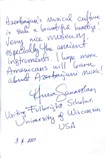 Azerbaijan's musical culture
is such a beautiful heritage!
Very nice museum,
especially the ancient
instruments. I hope more
Americans will learn
about Azerbaijani music!
Anna
Visiting Fulbright Scholar
University of Wisconsin
USA